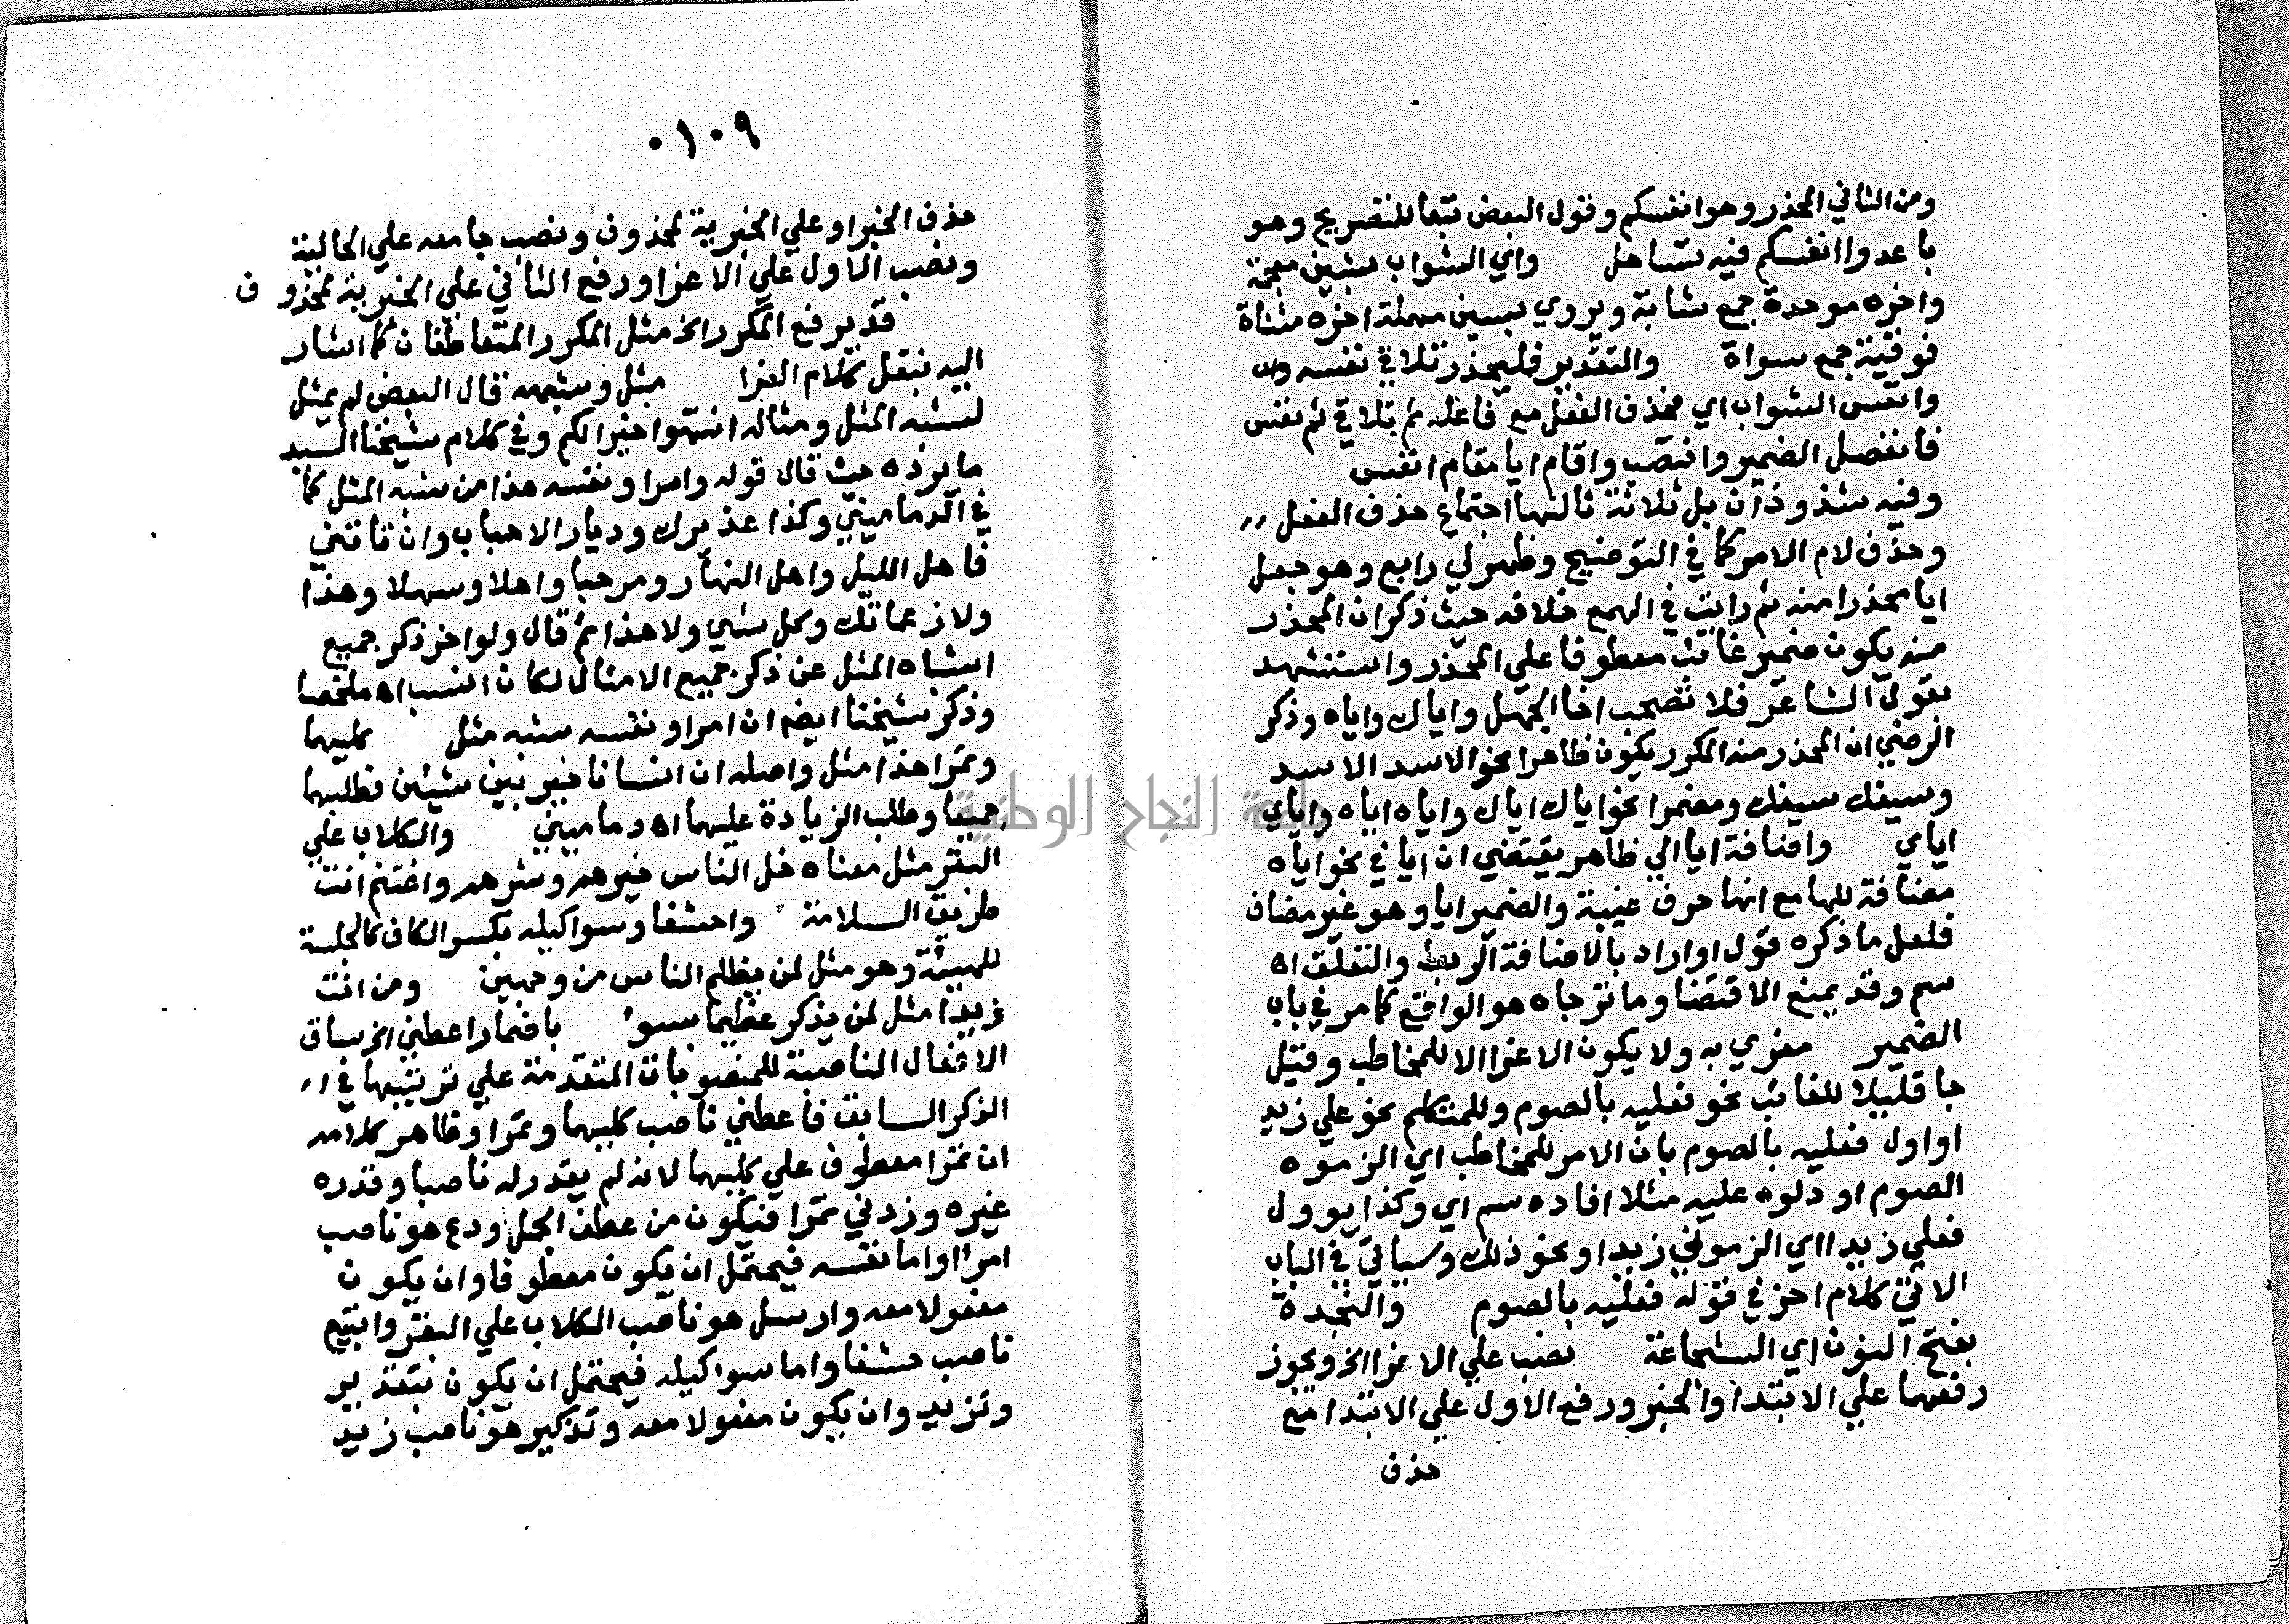 ومن الثاني المحذر وهو انفسكم وقول البعض تبعا للتصريح وهو
باعدوا انفسكم فيه تساهل واي الشواب بشين معجمة
واخره موحدة جمع شابة ويروي بسين مهملة اخره مثناة
فوقية جمع سواة والتقدير فليحذر تلاقي نفسه
وانفس الشواب اي فحذف الفعل مع فاعله ثم تلاقي ثم نفس
فانفصل الضمير وانتصب واقام ايا مقام انفس
وفيه شذوذان بل ثلاثة ثالثها اجتماع حذف الفعل
وحذف لام الامر كما في التوضيح وظهر لي رابع وهو جعل
ايا محذرا منه ثم رايت في الهمع خلافه حيث ذكر ان المحذر
منه يكون ضمير غائب معطوفا علي المحذر واستشهد
بقول الشاعر فلا تصحب اخا الجهل واياك واياه وذكر
الرضي ان المحذر منه المكرر يكون ظاهرا نحو الاسد الاسد
وسيفك سيفك ومضمرا نحو اياك اياك واياه اياه واياي
اياي واضافة ايا الي ظاهر يقتضي ان ايا في نحو اياه
مضافة للها مع انها حرف غيبة والضمير ايا وهو غير مضاف
فلعل ما ذكره قول او اراد بالاضافة الربط والتعلق اه
سم وقد يمنع الاقتضا وما ترجاه هو الواقع كما مر في باب
الضمير مغري به ولا يكون الاغرا الا للمخاطب وقيل
جا قليلا للغائب نحو فعليه بالصوم وللمتكلم نحو علي زيد
اواول فعليه بالصوم بان الامر للمخاطب اي الزموه
الصوم او دلوه عليه مثلا افاده سم اي وكذا يوول
فعلي زيدا اي الزموني زيدا ونحو ذلك وسياتي في الباب
الاتي كلام اخر في قوله فعليه بالصوم والنجدة
بفتح النون اي الشجاعة نصب علي الاغرا الخ ويجوز
رفعهما علي الابتدا والخبر ورفع الاول علي الابتدا مع
حذف
٠١٠٩
حذف الخبر او علي الخبرية لمحذوف ونصب جامعه علي الحالية
ونصب الاول علي الاغرا ورفع الثاني علي الخبرية لمحذوف
قد يرفع المكرر الخ مثل المكرر المتعاطفان كما اشار
اليه بنقل كلام الفرا مثل وشبهه قال البعض لم يمثل
لشبه المثل ومثاله انتهوا خيرا لكم وفي كلام شيخنا السيد
ما يرده حيث قال قوله وامرا ونفسه هذا من شبه المثل كما
في الدماميني وكذا عذيرك وديار الاحباب وان تاتني
فاهل الليل واهل النهار ومرحبا واهلا وسهلا وهذا
ولا زعماتك وكل شي ولا هذا ثم قال ولو اخر ذكر جميع
اشباه المثل عن ذكر جميع الامثال لكان انسب اه ملخصا
وذكر شيخنا ايضم ان امرا ونفسه شبه مثل كليهما
وتمرا هذا مثل واصله ان انسانا خير بين شيئين فطلبهما
جميعا وطلب الزيادة عليهما اه دماميني والكلاب علي
البقر مثل معناه خل الناس خيرهم وشرهم واغتنم انت
طريق السلامة واحشفا وسوا كيله بكسر الكاف كالجلسة
للهيئة وهو مثل لمن يظلم الناس من وجهين ومن انت
زيدا مثل لمن يذكر عظيما بسوء باضمار اعطني الخ ساق
الافعال الناصبة للمنصوبات المتقدمة علي ترتيبها في
الذكر السابق فاعطني ناصب كليهما وتمرا وظاهر كلامه
ان تمرا معطوف علي كليهما لانه لم يقدر له ناصبا وقدره
غيره وزدني تمرا فيكون من عطف الجمل ودع هو ناصب
امرءا واما نفسه فيحتمل ان يكون معطوفا وان يكون
مفعولا معه وارسل هو ناصب الكلاب علي البقر واتبيع
ناصب حشفا واما سوا كيله فيحتمل ان يكون بتقدير
وتزيد وان يكون مفعولا معه وتذكير هو ناصب زيد
جامعة النجاح الوطنية